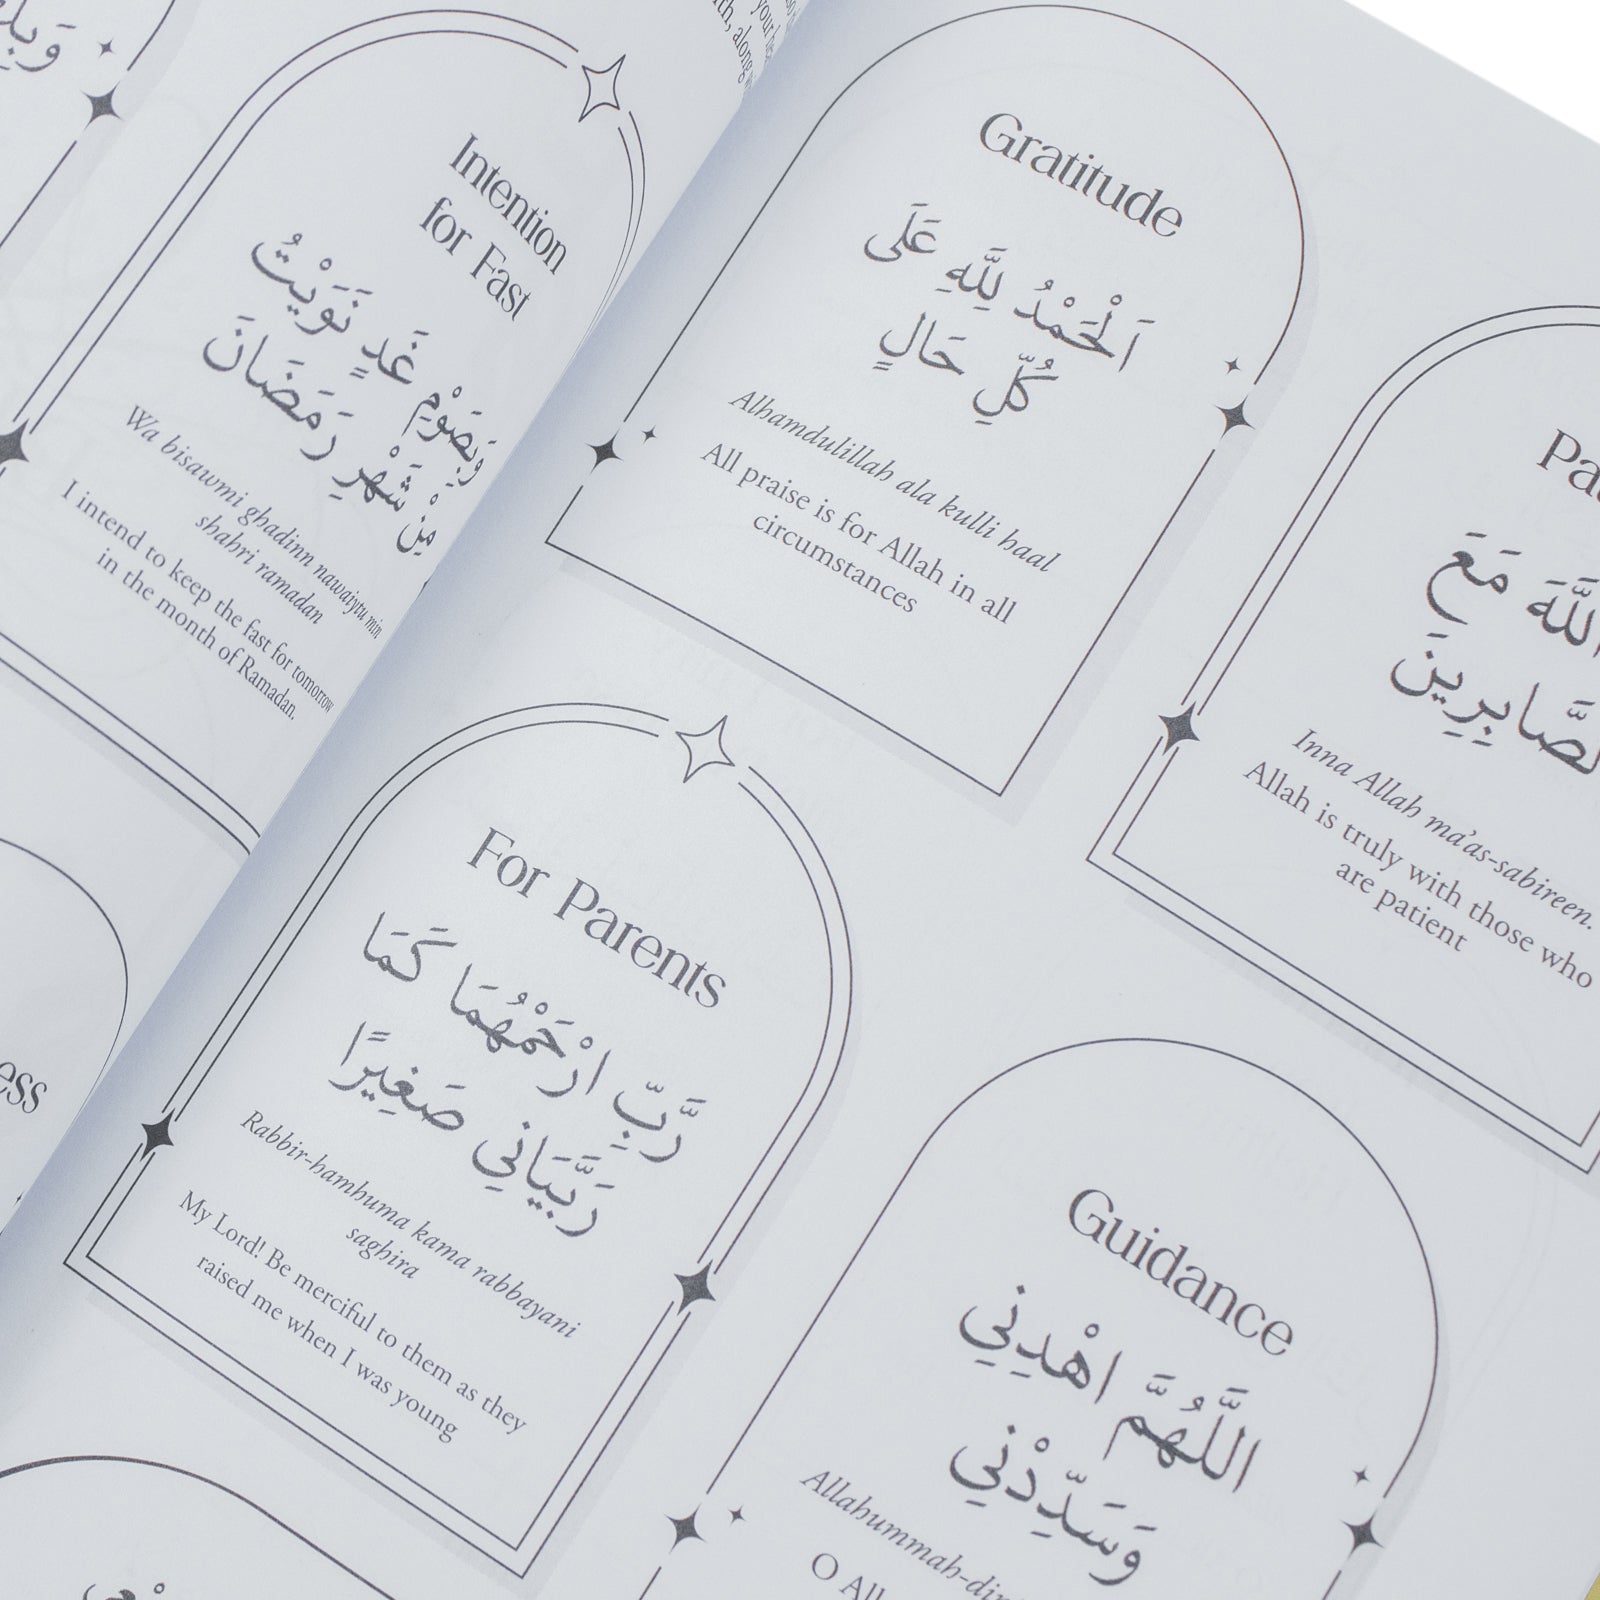 Intention
for Fast
وَبِصَوْمِ غَدٍ نَوَيْتُ
مِنْ شَهْرِ رَمَضَانَ
Wa bisawmi ghadinn nawaiytu min
shahri ramadan
I intend to keep the fast for tomorrow
in the month of Ramadan.
Gratitude
اَلْحَمْدُ لِلَّهِ عَلَى
كُلِّ حَالٍ
Alhamdulillah ala kulli haal
All praise is for Allah in all
circumstances
اللَّهَ مَعَ
الصَّابِرِينَ
Inna Allah ma'as-sabireen.
Allah is truly with those who
are patient
For Parents
رَّبِّ ارْحَمْهُمَا كَمَا
رَبَّيَانِي صَغِيرًا
Rabbir-hamhuma kama rabbayani
saghira
My Lord! Be merciful to them as they
raised me when I was young
Guidance
اللَّهُمَّ اهْدِنِي
وَسَدِّدْنِي
Allahummah-din
O All
ess